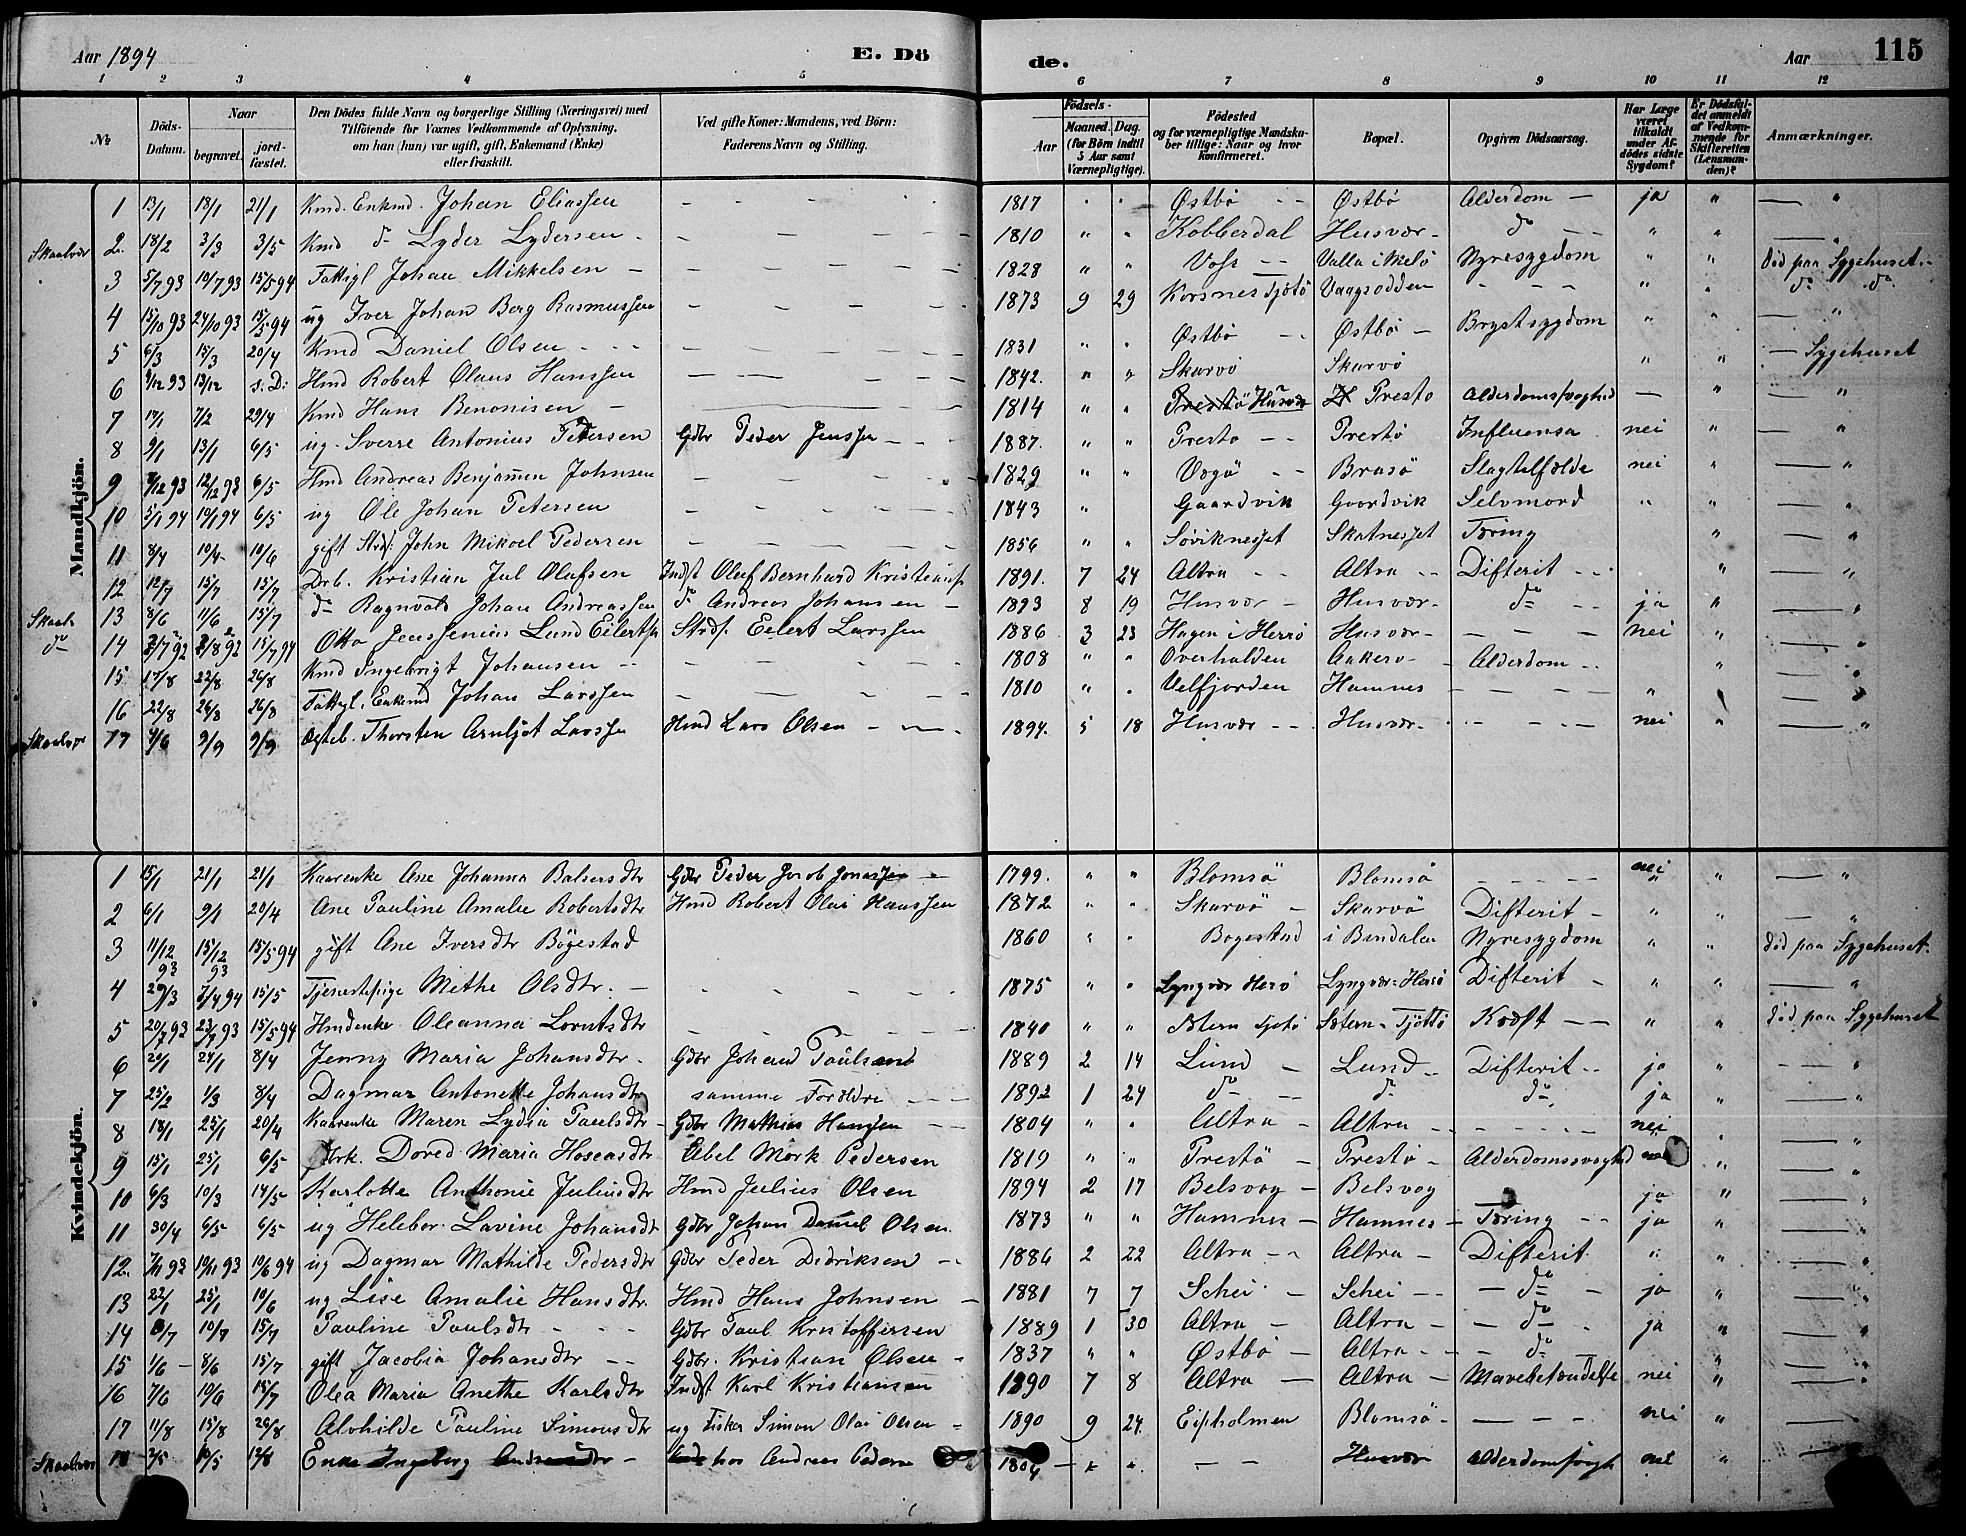 Aar 1894 E. Dö de. Aar 115
1 2 3 4 5 6 7 8 9 10 11 12
№ Döds-Datum. Naar begravet. jord-fæstet. Den Dödes fulde Navn og borgerlige Stilling (Næringsvei) med Tilföiende for Voxnes Vedkommende af Oplysning, om han (hun) var ugift, gift, Enkemand (Enke) eller fraskilt. Ved gifte Koner: Mandens, ved Börn: Faderens Navn og Stilling. Födsels- Aar Maaned. Dag. (for Börn indtil 5 Aar samt Værnepligtige). Födested og for værnepligtige Mandskaber tillige: Naar og hvor konfirmeret. Bopæl. Opgiven Dödsaarsag. Har Læge været tilkaldt under Afdödes sidste Sygdom? Er Dödsfaldet anmeldt af Vedkommende for Skifteretten (Lensmanden)? Anmærkninger.
Mandkjön.
1 13/1 18/1 21/1 Kmd. Enkmd. Johan Eliassen - - - - 1817 " " Østbö - - Østbö Alderdom - ja " — "
Skaalvær 2 18/2 3/3 3/5 Kmd do Lyder Lydersen - - - - - 1810 " " Kobberdal Husvær - do - - " " — "
3 5/7 93 10/7 93 15/5 94 Fattigl Johan Mikkelsen - - - - - 1828 " " Voss - - Valla i Melö Nyresygdom " " död paa Sygehuset.
4 15/10 93 24/10 93 15/5 94 ug Iver Johan Berg Rasmussen - - - - 1873 9 29 Korsnes Tjötö Vaagsodden - - - " " do do
5 6/3 15/3 20/4 Kmd Daniel Olsen - - - - - - - 1831 " " Østbö - - Østbö - Brystsygdom " " — "
6 9/12 93 13/12 s. D: Hmd Robert Olaus Hanssen - - - - 1842. " " Skarvö Skarvö " " — Sygehuset
7 17/1 7/2 29/4 Kmd Hans Benonisen - 1814 " " Husvær Presto Alderdomssvaghed — " — "
8 9/1 13/1 6/5 ug. Sverre Antonius Petersen Gdbr Peder Jenssen - - 1887. " " Presto - - Prestö Influensa nei " — "
9 9/12 93 12/12 93 6/5 Hmd Andreas Benjamin Johnsen - - - - 1829 " " Vægö - - Brasö Slagtilfælde nei " — "
10 5/1 94 19/1 94 6/5 ug Ole Johan Petersen - - - - 1843 " Gaardvik Gaardvik Selvmord " " — "
11 8/4 10/4 10/6 gift Strds. John Mikael Pedersen - - - - 1856 " " Söviknesset Skatnesset Tæring " — "
12 12/7 15/7 15/7 Drb. Kristian Jul Olufsen Indst Oluf Bernhard Kristians. 1891. 7 24 Altra - - Altra - - Difterit - - " — "
Skaalv 13 8/6 11/6 15/7 do Ragnvald Johan Andreassen do Andreas Johansen - 1893 8 19 Husvær - Husvær - do - - ja " — "
do 14 15/7 94 Otto Jenssenius Lund Eilertsen Strds. Eilert Larssen 1886 3 23 Hagen i Herö Husvær - - - - nei " — "
15 17/8 22/8 26/8 Kmd Ingebrigt Johansen - - - - - - 1808 " " Overhalden Ankero - Alderdom - - " — "
16 22/8 26/8 26/8 Fattigl. Enkemd Johan Larssen - - - - 1810 " " Velfjorden Hamnes - - - - " — "
Skaalvær 17 9/6 9/9 9/9 Ægteb. Thorsten Arnljot Larssen Hmd Lars Olsen - - - 1894. 5 18 Husvær - - Husvær - - - - nei " — "
Kvindekjön.
1 15/1 21/1 21/1 Kaarenke Ane Johanna Balsersdtr Gdbr Peder Jacob Jonassen - 1799. " " Blomsö Blomsö - - - - nei " — "
2 6/1 9/1 20/4 Ane Pauline Amalie Robertsdtr Hmd Robert Olai Hanssen 1872 " " Skarvö - Skarvö Difterit - " " — "
3 11/12 93 15/12 93 15/5 94 gift Ane Iversdtr Bögestad 1860 " " Bogestad i Bindalen Nyresygdom " " död paa Sygehuset.
4 29/3 7/4 94 15/5 Tjenestepige Methe Olsdtr. - - - - - 1875 " " Lyngvær Herö Lyngvær Herö Difterit - " " — "
5 20/7 93 23/7 93 15/5 94 Hmdenke Oleanna Lorntsdtr - - - - 1840 " " Stern Tjötö Stern - Tjöttö Kræft - - " " död paa Sygehuset
6 20/1 24/1 8/4 Jenny Maria Johansdtr. Gdbr Johan Paulsen 1889 2 14 Lund - Lund - Difterit - - ja " — "
7 25/2 1/3 8/4 Dagmar Antonette Johansdtr samme Forældre - - - 1892 1 24 do - - do do ja " — "
8 18/1 25/1 20/4 Kaarenke Maren Lydia Paulsdtr - Gdbr Mathias Hanssen - - 1804 " " Altra - Altra - - - - - nei " — "
9 15/1 25/1 6/5 Dored Maria Hoseasdtr Abel Mörk Pedersen 1819 " " Prestö - Prestö - Alderdomssvaghed " — "
10 6/3 10/3 14/5 Karlotte Anthonie Juliusdtr Hmd Julius Olsen 1894 2 17 Belsvog - Belsvog ja " — "
11 30/4 6/5 6/5 ug Helebor Lavine Johansdtr Gdbr Johan Daniel Olsen 1873 " " Hamnes - Hamnes - Tæring - - ja " — "
12. 7/11 93 19/11 93 10/6 94 ug Dagmar Mathilde Pedersdtr Gdbr Peder Didriksen - - 1886 2 22 Altra - - Altra - Difterit " " — "
13 22/1 25/1 10/6 ug Lise Amalie Hansdtr. Hmd Hans Johnsen - 1881 7 7 Schei - Schei - - - do - ja " — "
14 8/7 10/7 15/7 Pauline Paulsdtr - - - Gdbr Paul Kristoffersen 1889 1 30 Altra - Altra - - do - ja " — "
15 1/6 - 8/6 15/7 gift Jacobia Johansdtr - - Gdbr. Kristian Olsen - 1837 " " Østbö - Altra - - - do - " — "
16 7/6 10/6 15/7 Olea Maria Anethe Karlsdtr Indst Karl Kristiansen 1890 7 8 Altra - Altra - nei " — "
17 11/8 15/8 26/8 Alvhilde Pauline Simonsdtr ug Fisker Simon Olai Olsen - 1890 9 24. Eipholmen Blomsö - - - - nei " — "
Skaalvær 18 3/5 10/5 12/8 Enke Ingeborg Andreasdtr - hos Andreas Peders 1804 - " " - - Husvær Alderdomssvagh nei —